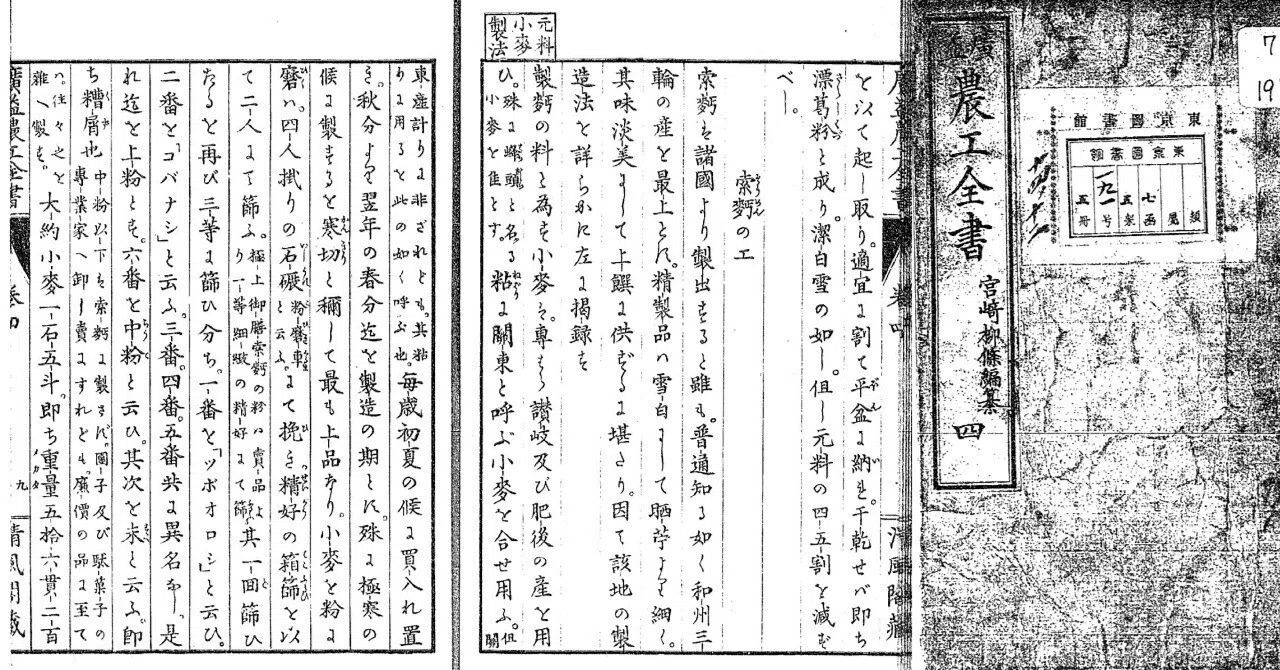 7
19
東京圖書館
東京圖書館
類屬
七函
五架
一九一号
五冊
廣益農工全書 宮崎柳條編纂 四
を以て起し取り。適宜に割て平盆に納も。干乾せバ即ち
漂葛粉と成り。潔白雪の如し。但し元料の四五割を減ず
べし。
索麪の工
索麪を諸國より製出すると雖も。普通知る如く和州三
輪の産を最上とす。精製品ハ雪白にして晒苧より細く。
其味淡美にして上饌に供ずるに堪たり。因て該地の製
造法を詳らかに左に掲録す
元料小麥製法
製麪の料と為す小麥ハ。專ら讃岐及び肥後の産を用
ひ。殊に と名る小麥を佳とす。粘に關東と呼ぶ小麥を合せ用ふ。但關
東産計りに非ざれども。其粘りに用ると此の如く呼ぶ也。毎歳初夏の候に買入れ置
き。秋分より翌年の春分迄を製造の期とす。殊に極寒の
候に製するを寒切と稱して最も上品なり。小麥を粉に
磨ハ。四人拭りの石碾粉磨車と云ふ。にて挽き精好の箱篩を以
て二人にて篩ふ。極上御膳索麪の粉ハ賣品より一等細緻の精好にて篩ふ其一回篩ひ
たるを再び三等に篩ひ分ち。一番を「ツボオロシ」と云ひ。
二番を「コバナシ」と云ふ。三番。四番。五番共に異名なし。是
れ迄を上粉とす。六番を中粉と云ひ。其次を末と云ふ。即
ち糟屑也 中粉以下を索麪に製さバ。團子及び駄菓子の專業家へ卸し賣にすれども。廉價の品に至て
ハ。往々之を雜へ製す。大約小麥一石五斗。即ち重量五拾六貫二百
廣益農工全書
巻四
九
清風閣藏